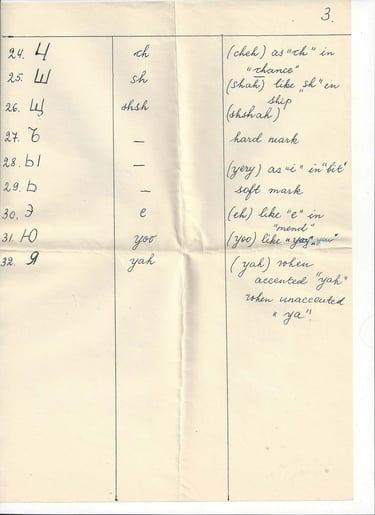 3.
24. Ч ch (cheh) as "ch" in
"chance"
25. Ш sh (shah) like "sh" in
ship
26. Щ shsh (shshah)
27. Ъ — hard mark
28. Ы — (yery) as "i" in "bit"
29. Ь — soft mark
30. Э e (eh) like "e" in
"mend"
31. Ю yoo (yoo) like "you"
32. Я yah (yah) when
accented "yah"
when unaccented
"ya".